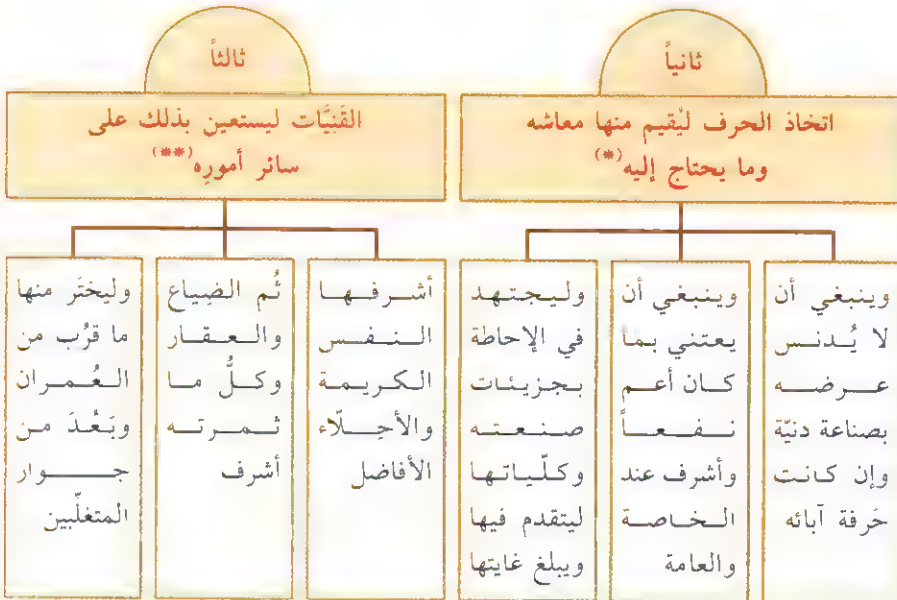 ثانياً
اتخاذ الحرف ليُقيم منها معاشه
وما يحتاج إليه(*)
وينبغي أن
لا يُدنس
عرضه
بصناعة دنيّة
وإن كانت
حَرفة آبائه
وينبغي أن
يعتني بما
كان أعم
نفعاً
وأشرف عند
الخاصة
والعامة
وليجتهد
في الإحاطة
بجزيئات
صنعته
وكلّياتها
ليتقدم فيها
ويبلغ غايتها
ثالثاً
القَنيَّات ليستعين بذلك على
سائر أمورِه(**)
أشرفها
النفس
الكريمة
والأجلّاء
الأفاضل
ثُم الضِياع
والعقار
وكلُّ ما
ثمرته
أشرف
وليختَر منها
ما قرُب من
العُمران
وبَعُدَ من
جوار
المتغلّبين